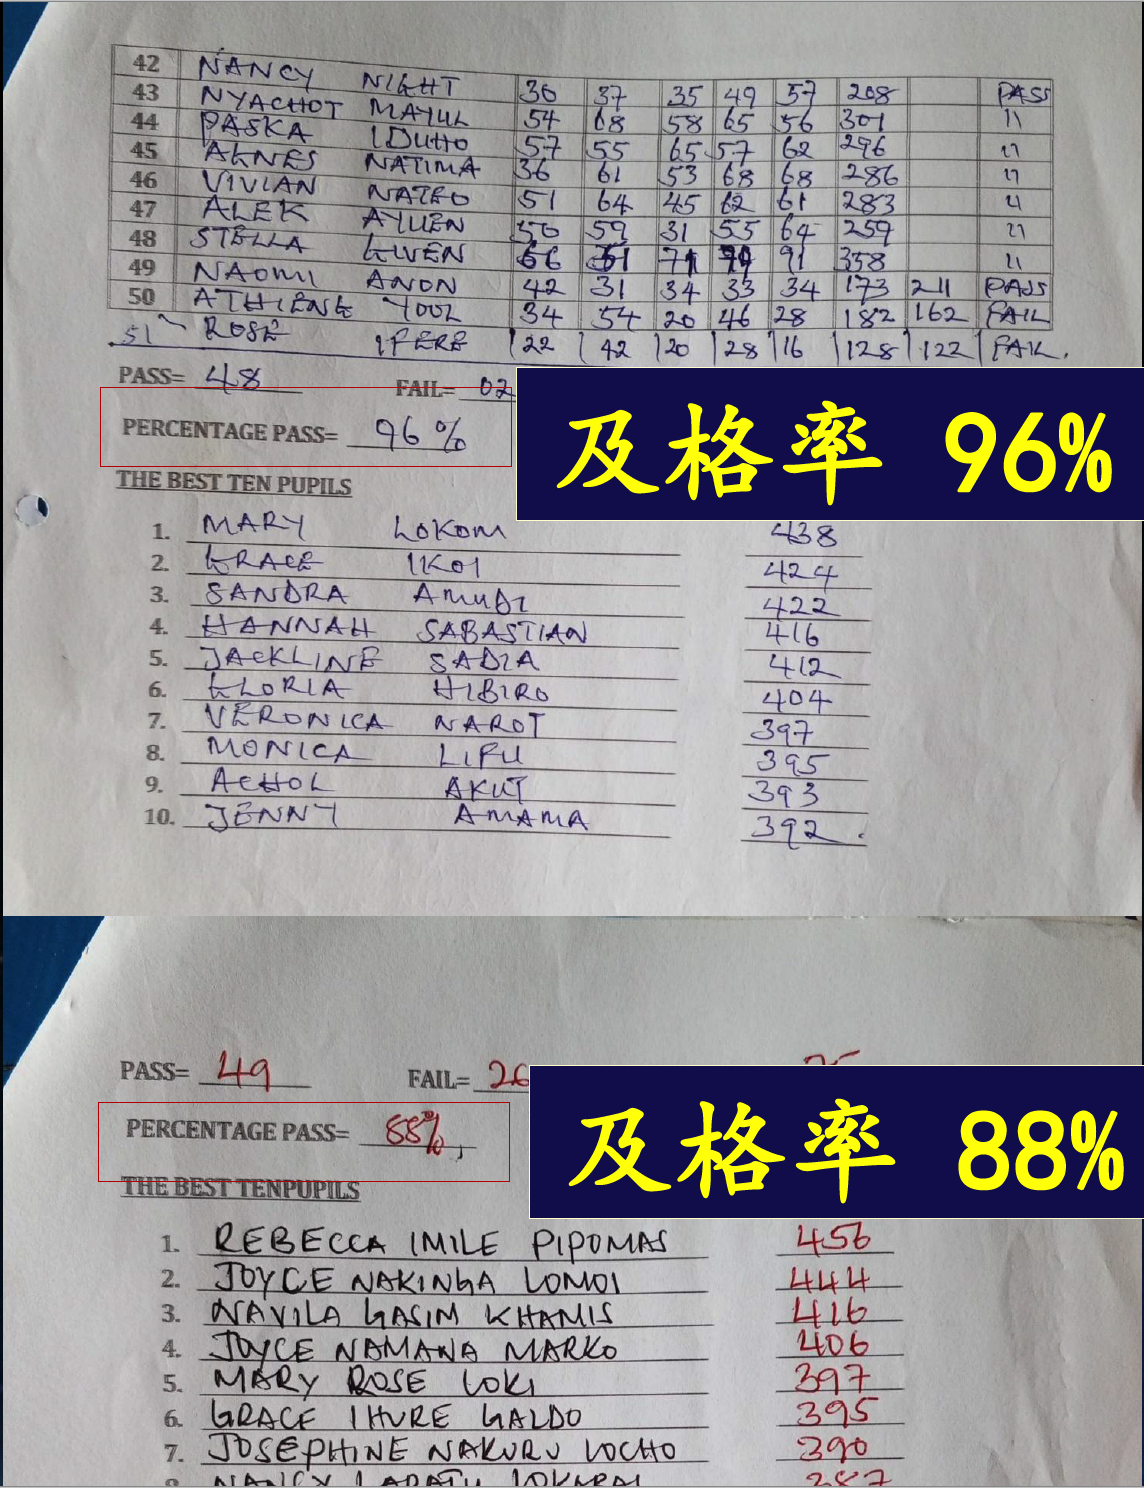 42 NANCY NIGHT 30 37 35 49 57 208 PASS
43 NYACHOT MAYUL 54 68 58 65 56 301 11
44 PASKA IDUHO 57 55 65 57 62 296 11
45 AGNES NATIMA 36 61 53 68 68 286 11
46 VIVIAN 51 64 45 62 61 283 11
47 ALEK AYUEN 50 59 31 55 64 259 11
48 STELLA GWEN 66 51 71 79 91 358 11
49 NAOMI ANON 42 31 34 33 34 173 211 PASS
50 ATHIENG YOOL 34 54 20 46 28 182 162 FAIL
51 ROSE IPERE 22 42 20 28 16 128 122 FAIL.
PASS= 48 FAIL= 02
PERCENTAGE PASS= 96%
及格率 96%
THE BEST TEN PUPILS
1. MARY LOKOM 438
2. GRACE IKOI 424
3. SANDRA AMUDI 422
4. HANNAH SABASTIAN 416
5. JACKLINE SADIA 412
6. GLORIA HIBIRO 404
7. VERONICA NAROT 397
8. MONICA LIFU 395
9. ACHOL AKUT 393
10. JENNY AMAMA 392.
PASS= 49 FAIL= 26
PERCENTAGE PASS= 88%,
及格率 88%
THE BEST TENPUPILS
1. REBECCA IMILE PIPOMAS 456
2. JOYCE NAKINGA LOMOI 444
3. NAVILA GASIM KHAMIS 416
4. JOYCE NAMANA MARKO 406
5. MARY ROSE LOKI 397
6. GRACE IHURE GALDO 395
7. JOSEPHINE NAKURU LOCHO 390
NANCY 387